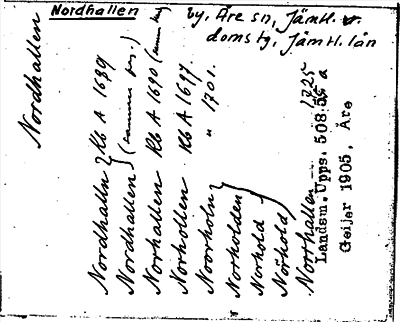 Nordhallen
by, Åre sn, Jämtl. v.
domsbg, Jämtl. län
Nordhallen
Nordhalln } Rb A 1689
Nordhallen (samma
Norhallen Rb A 1690 (samma
Norhollen Rb A 1697
Noorholn } " 1701.
Norholden
Norhold
Nårhold
Norrhallen – 1725
Landsm. Upps. 508: a
Geijer 1905, Åre